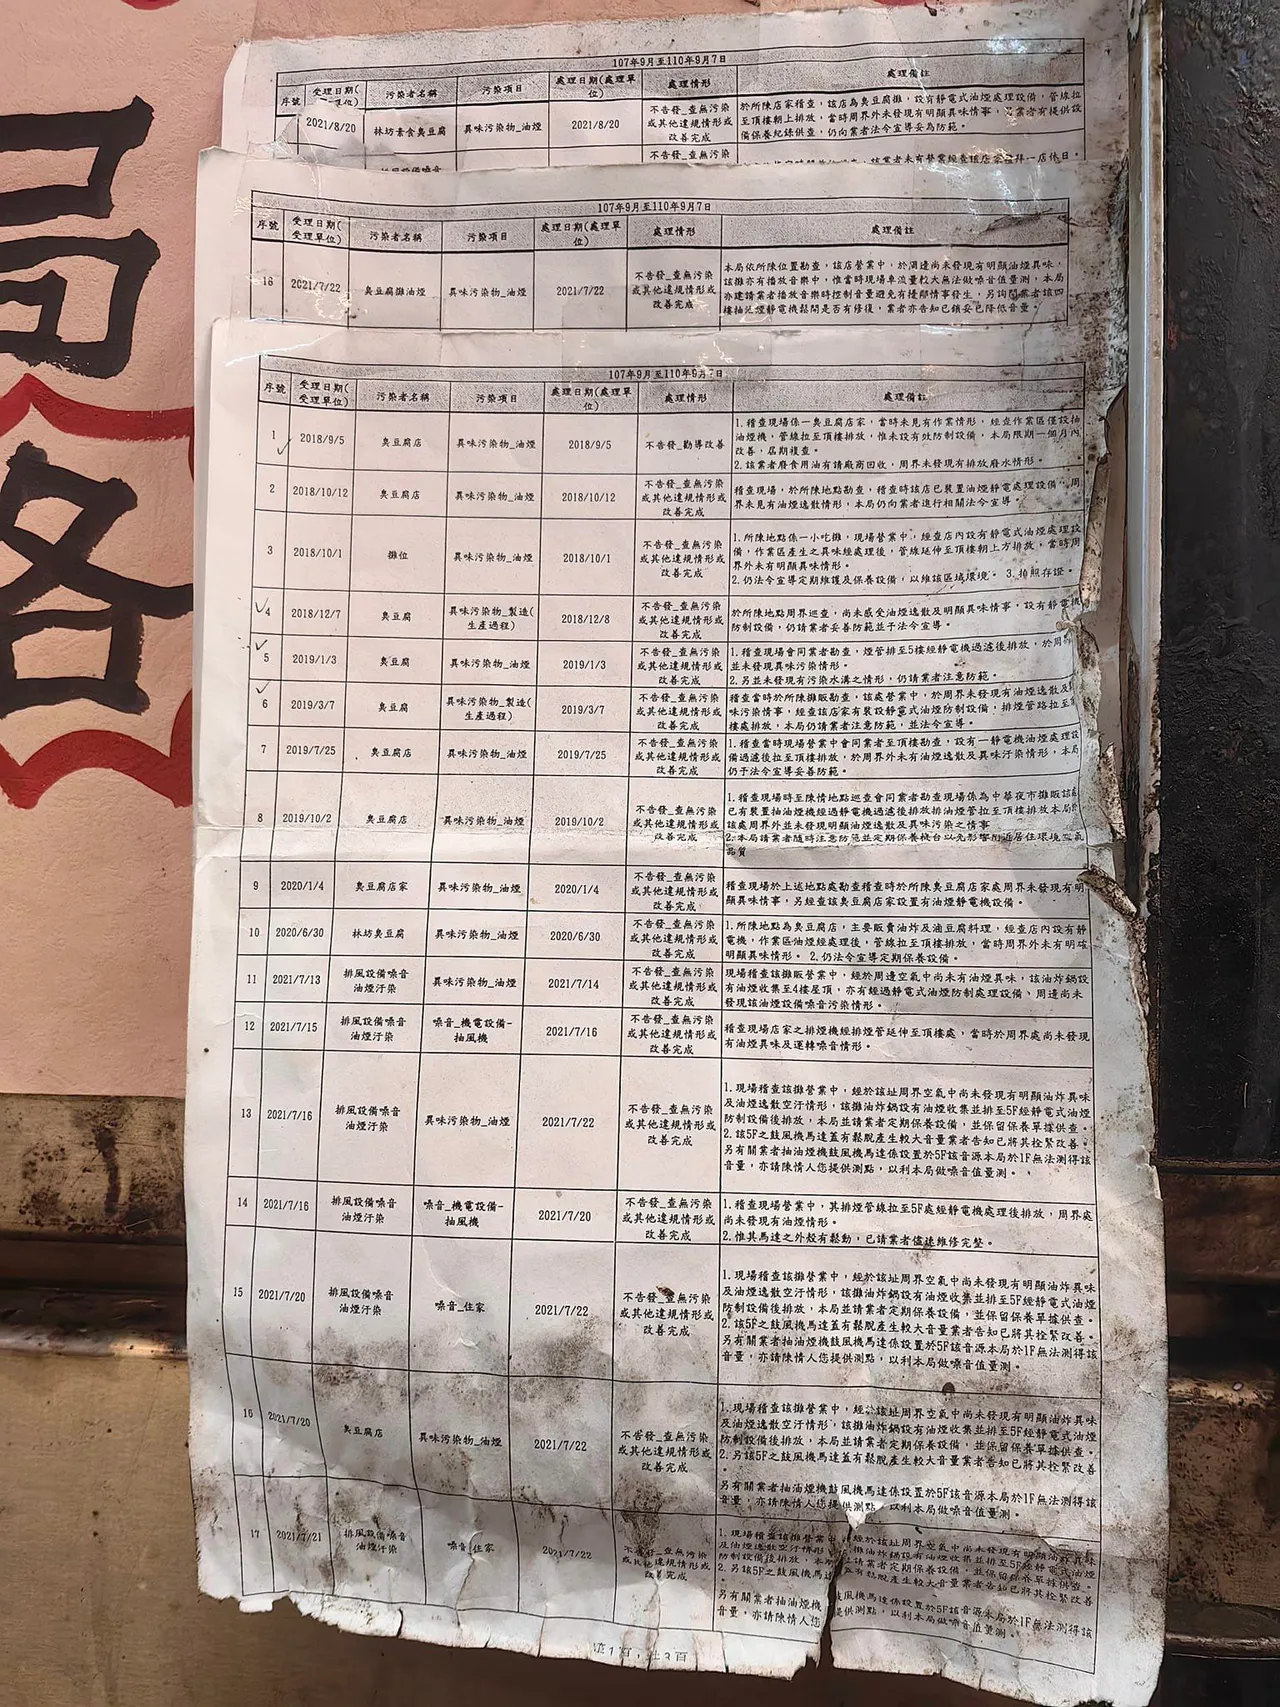 107年9月至110年9月7日
序號 受理日期( 污染者名稱 污染項目 處理日期(處理單位) 處理情形 處理備註
2021/8/20 林坊素食臭豆腐 異味污染物_油煙 2021/8/20
不告發_查無污染
或其他違規情形或
改善完成
於所陳店家稽查，該店為臭豆腐攤，設有靜電式油煙處理設備，管線拉
至頂樓朝上排放，當時周界外未發現有明顯異味情事，另業者有提供設
備保養紀錄供查，仍向業者法令宣導妥為防範。
不告發_查無污染
107年9月至110年9月7日
序號 受理日期(受理單位) 污染者名稱 污染項目 處理日期(處理單位) 處理情形 處理備註
18 2021/7/22 臭豆腐攤油煙 異味污染物_油煙 2021/7/22
不告發_查無污染
或其他違規情形或
改善完成
本局依所陳位置勘查，該店營業中，於周邊尚未發現有明顯油煙異味，
該攤亦有播放音樂中，惟當時現場車流量較大無法做噪音值量測，本局
亦建請業者播放音樂時控制音量避免有擾鄰情事發生，另詢問業者該四
樓抽油煙靜電機鬆開是否有修復，業者亦告知已鎖妥已降低音量。
107年9月至110年9月7日
序號 受理日期(受理單位) 污染者名稱 污染項目 處理日期(處理單位) 處理情形 處理備註
1 2018/9/5 臭豆腐店 異味污染物_油煙 2018/9/5 不告發_勸導改善
1.稽查現場係一臭豆腐店家，當時未見有作業情形，經查作業區僅設抽
油煙機，管線拉至頂樓排放，惟未設有效防制設備，本局限期一個月內
改善，屆期複查。
2.該業者廢食用油有請廠商回收，周界未發現有排放廢水情形。
2 2018/10/12 臭豆腐店 異味污染物_油煙 2018/10/12
不告發_查無污染
或其他違規情形或
改善完成
稽查現場，於所陳地點勘查，稽查時該店已裝置油煙靜電處理設備，周
界未見有油煙逸散情形，本局仍向業者進行相關法令宣導。
3 2018/10/1 攤位 異味污染物_油煙 2018/10/1
不告發_查無污染
或其他違規情形或
改善完成
1.所陳地點係一小吃攤，現場營業中，經查店內設有靜電式油煙處理設
備，作業區產生之異味經處理後，管線延伸至頂樓朝上方排放，當時周
界外未有明顯異味情形。
2.仍法令宣導定期維護及保養設備，以維該區域環境。 3.拍照存證。
4 2018/12/7 臭豆腐 異味污染物_製造(生產過程) 2018/12/8
不告發_查無污染
或其他違規情形或
改善完成
於所陳地點周界巡查，尚未感受油煙逸散及明顯異味情事，設有靜電機
防制設備，仍請業者妥善防範並予法令宣導。
5 2019/1/3 臭豆腐 異味污染物_油煙 2019/1/3
不告發_查無污染
或其他違規情形或
改善完成
1.稽查現場會同業者勘查，煙管排至5樓經靜電機過濾後排放，於周
並未發現異味污染情形。
2.另並未發現有污染水溝之情形，仍請業者注意防範。
6 2019/3/7 臭豆腐 異味污染物_製造(生產過程) 2019/3/7
不告發_查無污染
或其他違規情形或
改善完成
稽查當時於所陳攤販勘查，該處營業中，於周界未發現有油煙逸散及
味污染情事，經查該店家有裝設靜電式油煙防制設備，排煙管路拉至
樓處排放，本局仍請業者注意防範，並法令宣導。
7 2019/7/25 臭豆腐店 異味污染物_油煙 2019/7/25
不告發_查無污染
或其他違規情形或
改善完成
1.稽查當時現場營業中會同業者至頂樓勘查，設有一靜電機油煙處理設
備過濾後拉至頂樓排放，於周界外未有油煙逸散及異味汙染情形，本局
仍予法令宣導妥善防範。
8 2019/10/2 臭豆腐店 異味污染物_油煙 2019/10/2
不告發_查無污染
或其他違規情形或
改善完成
1.稽查現場時至陳情地點巡查會同業者勘查現場係為中華夜市攤販該
已有裝置抽油煙機經過靜電機過濾後排放排油煙管拉至頂樓排放本局
該處周界外並未發現明顯油煙逸散及異味污染之情事
2.本局請業者隨時注意防範並定期保養機台以免影響附近居住環境空氣
品質
9 2020/1/4 臭豆腐店家 異味污染物_油煙 2020/1/4
不告發_查無污染
或其他違規情形或
改善完成
稽查現場於上述地點處勘查稽查時於所陳臭豆腐店家處周界未發現有明
顯異味情事，另經查該臭豆腐店家設置有油煙靜電機設備。
10 2020/6/30 林坊臭豆腐 異味污染物_油煙 2020/6/30
不告發_查無污染
或其他違規情形或
改善完成
1.所陳地點為臭豆腐店，主要販賣油炸及滷豆腐料理，經查店內設有靜
電機，作業區油煙經處理後，管線拉至頂樓排放，當時周界外未有明確
明顯異味情形。 2.仍法令宣導定期保養設備。
11 2021/7/13 排風設備噪音油煙汙染 異味污染物_油煙 2021/7/14
不告發_查無污染
或其他違規情形或
改善完成
現場稽查該攤販營業中，經於周邊空氣中尚未有油煙異味，該油炸鍋設
有油煙收集至4樓屋頂，亦有經過靜電式油煙防制處理設備、周邊尚未
發現該油煙設備噪音污染情形。
12 2021/7/15 排風設備噪音油煙汙染 噪音_機電設備-抽風機 2021/7/16
不告發_查無污染
或其他違規情形或
改善完成
稽查現場店家之排煙機經排煙管延伸至頂樓處，當時於周界處尚未發現
有油煙異味及運轉噪音情形。
13 2021/7/16 排風設備噪音油煙汙染 異味污染物_油煙 2021/7/22
不告發_查無污染
或其他違規情形或
改善完成
1.現場稽查該攤營業中，經於該址周界空氣中尚未發現有明顯油炸異味
及油煙逸散空汙情形，該攤油炸鍋設有油煙收集並排至5F經靜電式油煙
防制設備後排放，本局並請業者定期保養設備，並保留保養單據供查。
2.該5F之鼓風機馬達蓋有鬆脫產生較大音量業者告知已將其拴緊改善。
另有關業者抽油煙機鼓風機馬達係設置於5F該音源本局於1F無法測得該
音量，亦請陳情人您提供測點，以利本局做噪音值量測。
14 2021/7/16 排風設備噪音油煙汙染 噪音_機電設備-抽風機 2021/7/20
不告發_查無污染
或其他違規情形或
改善完成
1.稽查現場營業中，其排煙管線拉至5F處經靜電機處理後排放，周界處
尚未發現有油煙情形。
2.惟其馬達之外殼有鬆動，已請業者儘速維修完整。
15 2021/7/20 排風設備噪音油煙汙染 噪音_住家 2021/7/22
不告發_查無污染
或其他違規情形或
改善完成
1.現場稽查該攤營業中，經於該址周界空氣中尚未發現有明顯油炸異味
及油煙逸散空汙情形，該攤油炸鍋設有油煙收集並排至5F經靜電式油煙
防制設備後排放，本局並請業者定期保養設備，並保留保養單據供查。
2.該5F之鼓風機馬達蓋有鬆脫產生較大音量業者告知已將其拴緊改善。
另有關業者抽油煙機鼓風機馬達係設置於5F該音源本局於1F無法測得該
音量，亦請陳情人您提供測點，以利本局做噪音值量測。
16 2021/7/20 臭豆腐店 異味污染物_油煙 2021/7/22
不告發_查無污染
或其他違規情形或
改善完成
1.現場稽查該攤營業中，經於該址周界空氣中尚未發現有明顯油炸異味
及油煙逸散空汙情形，該攤油炸鍋設有油煙收集並排至5F經靜電式油煙
防制設備後排放，本局並請業者定期保養設備，並保留保養單據供查。
2.另該5F之鼓風機馬達蓋有鬆脫產生較大音量業者告知已將其拴緊改善
。
另有關業者抽油煙機鼓風機馬達係設置於5F該音源本局於1F無法測得該
音量，亦請陳情人您提供測點，以利本局做噪音值量測。
17 2021/7/21 排風設備噪音油煙汙染 噪音_住家 2021/7/22
不告發_查無污染
或其他違規情形或
改善完成
1.現場稽查該攤營業中 經於該址周界空氣中尚未發現有明顯油炸異味
及油煙逸散空汙情形 攤油炸鍋設有油煙收集並排至5F經靜電式油煙
防制設備後排放，本局 請業者定期保養設備，並保留保養單據供查。
2.另該5F之鼓風機馬達 蓋有鬆脫產生較大音量業者告知已將其拴緊改善
。
另有關業者抽油煙機 鼓風機馬達係設置於5F該音源本局於1F無法測得該
音量，亦請陳情人您 提供測點，以利本局做噪音值量測。
第1頁，共3頁